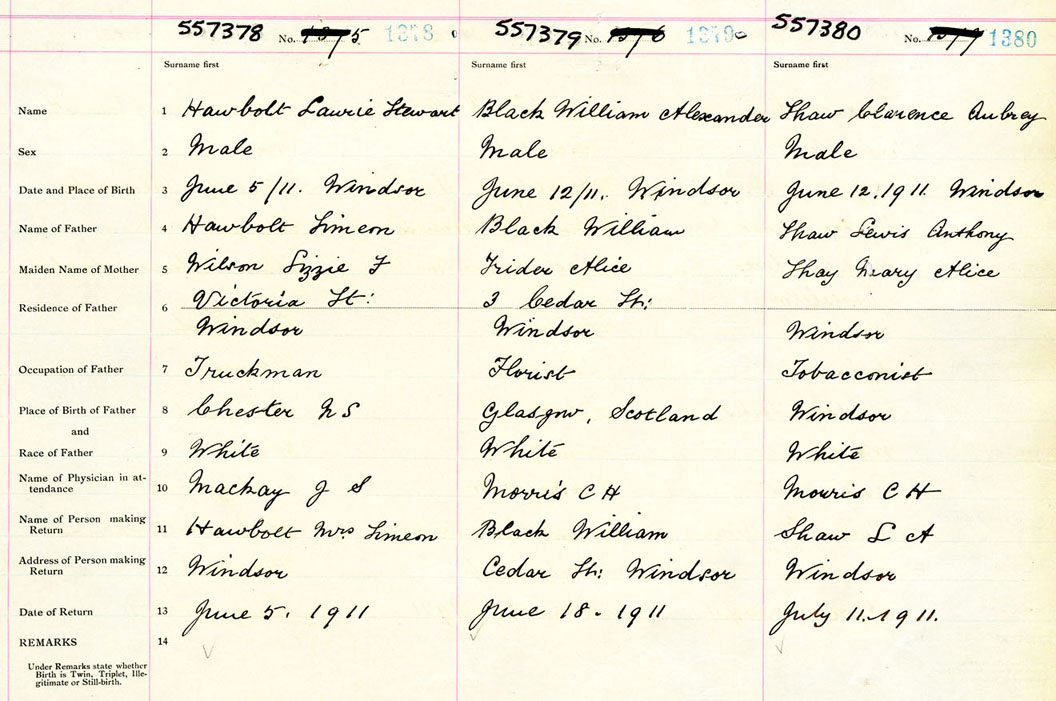 557378 No. 1375 1378
557379 No. 1376 1379
557380 No. 1377 1380
Surname first Surname first Surname first
Name 1 Hawbolt Laurie Stewart Black William Alexander Shaw Clarence Aubrey
Sex 2 Male Male Male
Date and Place of Birth 3 June 5/11. Windsor June 12/11. Windsor June 12.1911. Windsor
Name of Father 4 Hawbolt Simeon Black William Shaw Lewis Anthony
Maiden Name of Mother 5 Wilson Lizzie F Trider Alice Shay Mary Alice
Residence of Father 6 Victoria St: 3 Cedar St:
Windsor Windsor Windsor
Occupation of Father 7 Truckman Florist Tobacconist
Place of Birth of Father 8 Chester N S Glasgow, Scotland Windsor
and
Race of Father 9 White White White
Name of Physician in at-
tendance 10 Mackay J S Morris C H Morris C H
Name of Person making
Return 11 Hawbolt Mrs Simeon Black William Shaw L A
Address of Person making
Return 12 Windsor Cedar St: Windsor Windsor
Date of Return 13 June 5. 1911 June 18. 1911 July 11. 1911.
REMARKS 14
Under Remarks state whether
Birth is Twin, Triplet, Ille-
gitimate or Still-birth.